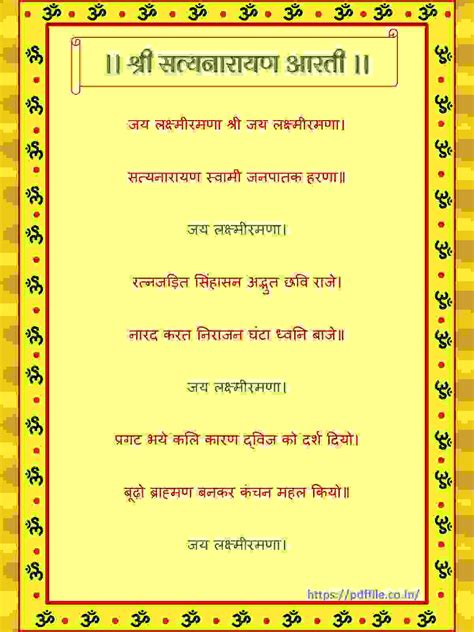 ॥ श्री सत्यनारायण आरती ॥
जय लक्ष्मीरमणा श्री जय लक्ष्मीरमणा।
सत्यनारायण स्वामी जनपातक हरणा॥
जय लक्ष्मीरमणा।
रत्नजड़ित सिंहासन अद्भुत छवि राजे।
नारद करत निराजन घंटा ध्वनि बाजे॥
जय लक्ष्मीरमणा।
प्रगट भये कलि कारण द्विज को दर्श दियो।
बूढ़ो ब्राह्मण बनकर कंचन महल कियो॥
जय लक्ष्मीरमणा।
https://pdffile.co.in/